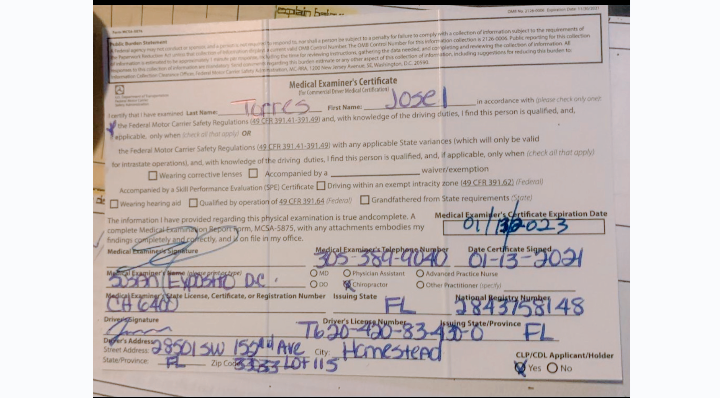 explain below
Form MCSA-5876
OMB No. 2126-0006 Expiration Date: 11/30/2021
Public Burden Statement
A Federal agency may not conduct or sponsor, and a person is not required to respond to, nor shall a person be subject to a penalty for failure to comply with a collection of information subject to the requirements of
the Paperwork Reduction Act unless that collection of information displays a current valid OMB Control Number. The OMB Control Number for this information collection is 2126-0006. Public reporting for this collection
of information is estimated to be approximately 1 minute per response, including the time for reviewing instructions, gathering the data needed, and completing and reviewing the collection of information. All
responses to this collection of information are mandatory. Send comments regarding this burden estimate or any other aspect of this collection of information, including suggestions for reducing this burden to:
Information Collection Clearance Officer, Federal Motor Carrier Safety Administration, MC-RRA, 1200 New Jersey Avenue, SE, Washington, D.C. 20590.
Medical Examiner's Certificate
(for Commercial Driver Medical Certification)
I certify that I have examined Last Name: Torres First Name: Jose in accordance with (please check only one):
the Federal Motor Carrier Safety Regulations (49 CFR 391.41-391.49) and, with knowledge of the driving duties, I find this person is qualified, and,
if applicable, only when (check all that apply) OR
the Federal Motor Carrier Safety Regulations (49 CFR 391.41-391.49) with any applicable State variances (which will only be valid
for intrastate operations), and, with knowledge of the driving duties, I find this person is qualified, and, if applicable, only when (check all that apply)
Wearing corrective lenses Accompanied by a waiver/exemption
Accompanied by a Skill Performance Evaluation (SPE) Certificate Driving within an exempt intracity zone (49 CFR 391.62) (Federal)
Wearing hearing aid Qualified by operation of 49 CFR 391.64 (Federal) Grandfathered from State requirements (State)
The information I have provided regarding this physical examination is true andcomplete. A
complete Medical Examination Report Form, MCSA-5875, with any attachments embodies my
findings completely and correctly, and is on file in my office.
Medical Examiner's Certificate Expiration Date
Medical Examiner's Signature
Medical Examiner's Telephone Number
305-389-9040
Date Certificate Signed
01-13-2021
Medical Examiner's Name (please print or type)
Susan Exposito D.C.
MD Physician Assistant Advanced Practice Nurse
DO Chiropractor Other Practitioner (specify)
Medical Examiner's State License, Certificate, or Registration Number
CH 6400
Issuing State
FL
National Registry Number
2843758148
Driver's Signature
Driver's License Number
T620-420-83-430-0
Issuing State/Province
FL
Driver's Address
Street Address: 28501 SW 152nd Ave City: Homestead
State/Province: FL Zip Code: 33033 Lot 115
CLP/CDL Applicant/Holder
Yes No